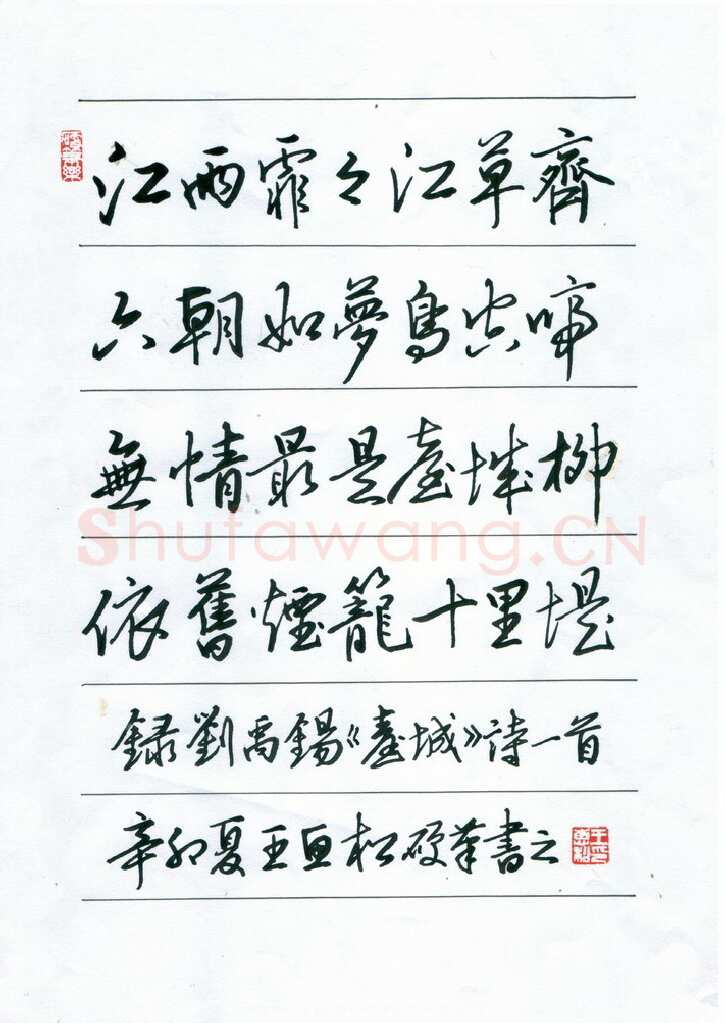 江雨霏々江草齊
六朝如夢鳥空啼
無情最是臺城柳
依舊煙籠十里堤
Shufawang.CN
錄劉禹錫《臺城》詩一首
辛卯夏王亜松硬筆書之